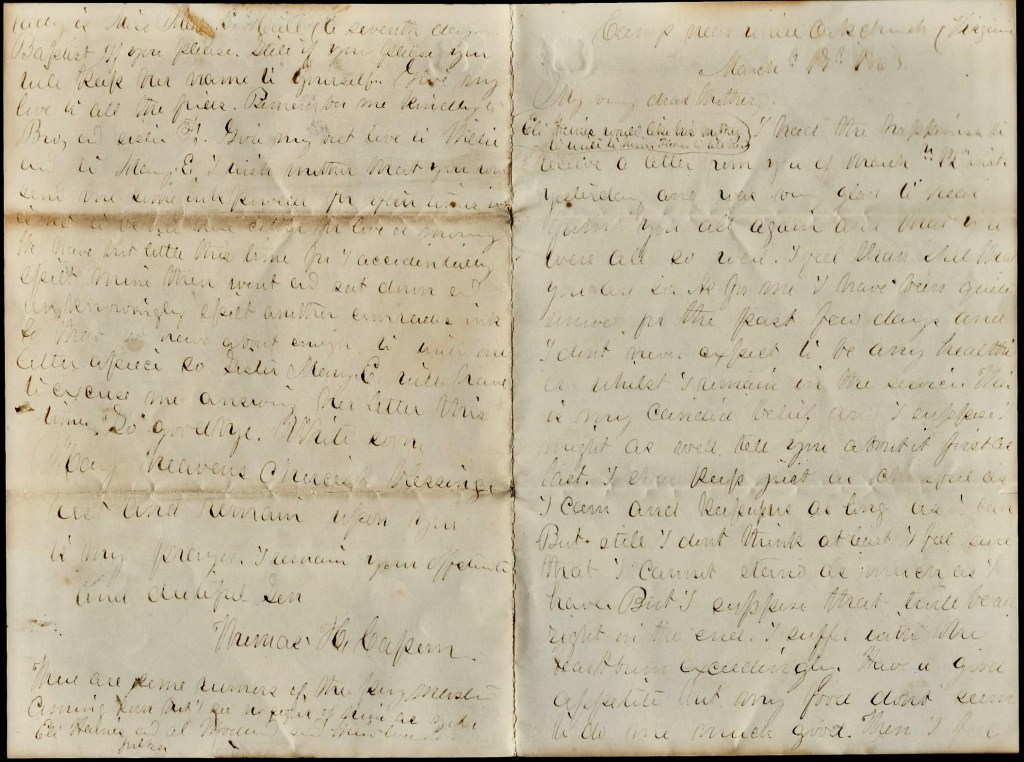 Camp near white Oak church, Virginia
March 19th 1863.
My very dear Mother,
Eli would like his mother
I had the happiness to
receive a letter from you of March 12th
yesterday and was very glad to hear
from you all again and that you
were all so well. I feel
you are so. As for me I have been quite
unwell for the past few days and
I dont never expect to be any healthi
er whilst I remain in the service. This
is my candid belief and I suppose I
might as well tell you about it first as
last. I shall keep just as cheerful as
I can and keep up as long as I can
But still I dont think at least I feel sure
that I cannot stand as much as I
have. But I suppose that will be all
right in the end. I suffer with the
heartburn exceedingly. Have a good
appetite but my food dont seem
to do me much good. Then I
is Miss a seventh day
Baptist if you please. Still if you please you
will keep her name to yourself. Give my
love to all the girls. Remember me kindly to
Bro, and sister Give my best love to Willie
and to Mary E. I wish mother that you would
send me some ink powder for your
have but little this time for I accidentally
spilt mine then went and sat down and
unknowingly spilt another comrades ink
So there is now about enough to write one
letter apiece so Sister Mary E. will have
to excuse me answering her letter this
time. So goodbye. Write soon,
May heavens choicest blessings
rest and remain upon you
is my prayer. I remain your affectionate
and dutiful Son
Thomas H. Capern.
There are some rumors of the Pay Master
coming soon but I see no signs of
Eli and al